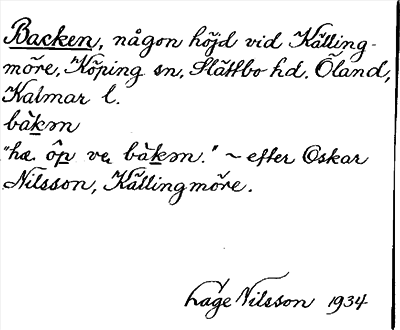 Backen, någon höjd vid Källing-
möre, Köping sn, Slättbo hd, Öland,
Kalmar l.
bàkəm
"hæ ôp ve bàkəm." ~ efter Oskar
Nilsson, Källingmöre.
Lage Nilsson 1934